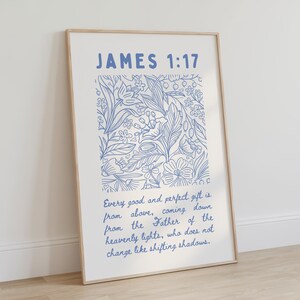 JAMES 1:17
Every good and perfect gift is
from above, coming down
from the Father of the
heavenly lights, who does not
change like shifting shadows.